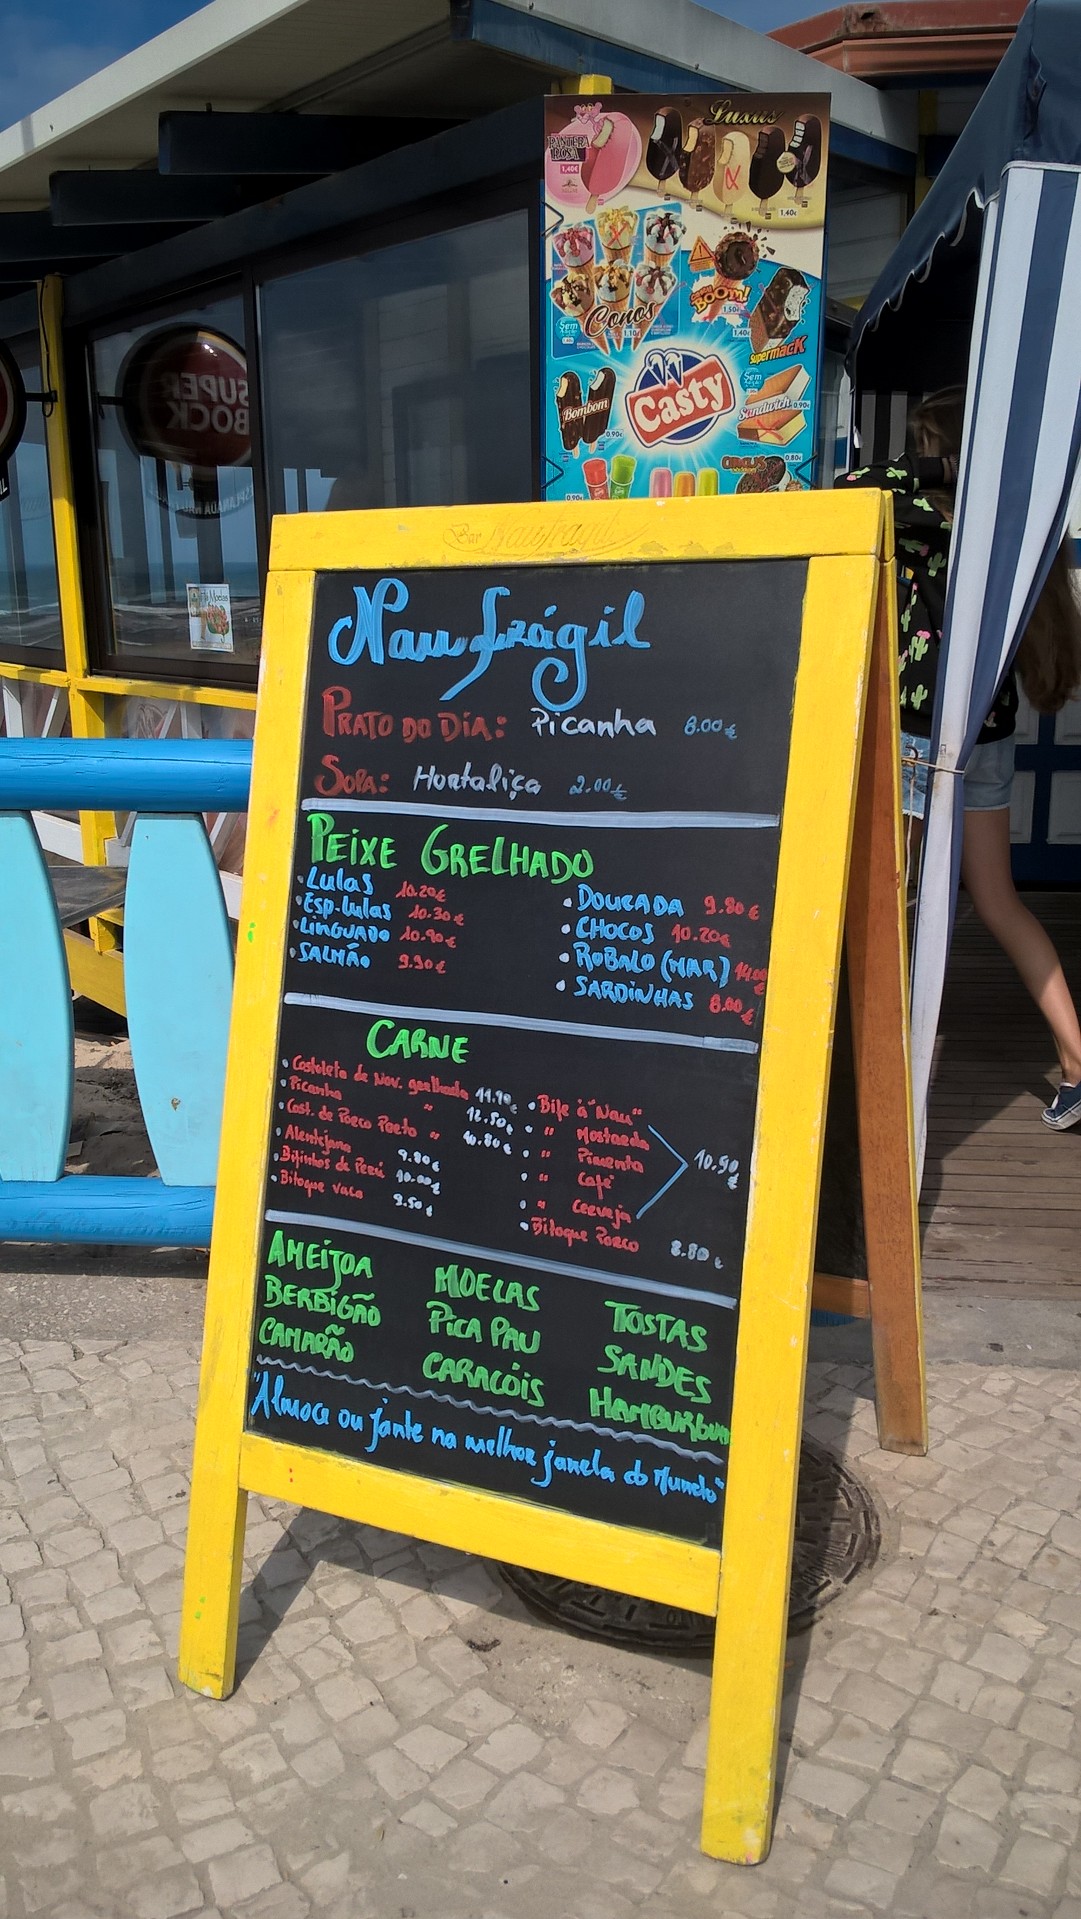 Luxus
PANTERA ROSA
1,40€
1,40€
Conos
1.10€
BOOM!
1,50€
1,40€
SUPERMACK
Sem
Sem
Bombom
0,90€
Casty
Sandwich 0,90€
0,80€
0,90€
SUPER
BOCK
Moelas
Bar Naufragil
Naufrágil
PRATO DO DIA: Picanha 8.00€
SOPA: Hortaliça 2.00€
PEIXE GRELHADO
• Lulas 10.20€
• Esp. Lulas 10.30€
• LINGUADO 10.90€
• SALMÃO 9.90€
• DOURADA 9.80€
• CHOCOS 10.20€
• ROBALO (MAR) 14.00€
• SARDINHAS 8.00€
CARNE
• Costoleta de Nov. grelhada 11.90€
• Picanha " 12.50€
• Cost. de Porco Preto " 10.80€
• Alentejana 9.80€
• Bifinhos de Perú 10.00€
• Bitoque vaca 9.50€
• Bife à "Nau"
• " Mostarda
• " Pimenta
• " Café
• " Cerveja
10.90€
• Bitoque Porco 8.80€
AMEIJOA
BERBIGÃO
CAMARÃO
MOELAS
PICA PAU
CARACÓIS
TOSTAS
SANDES
"Almoce ou jante na melhor janela do Mundo"